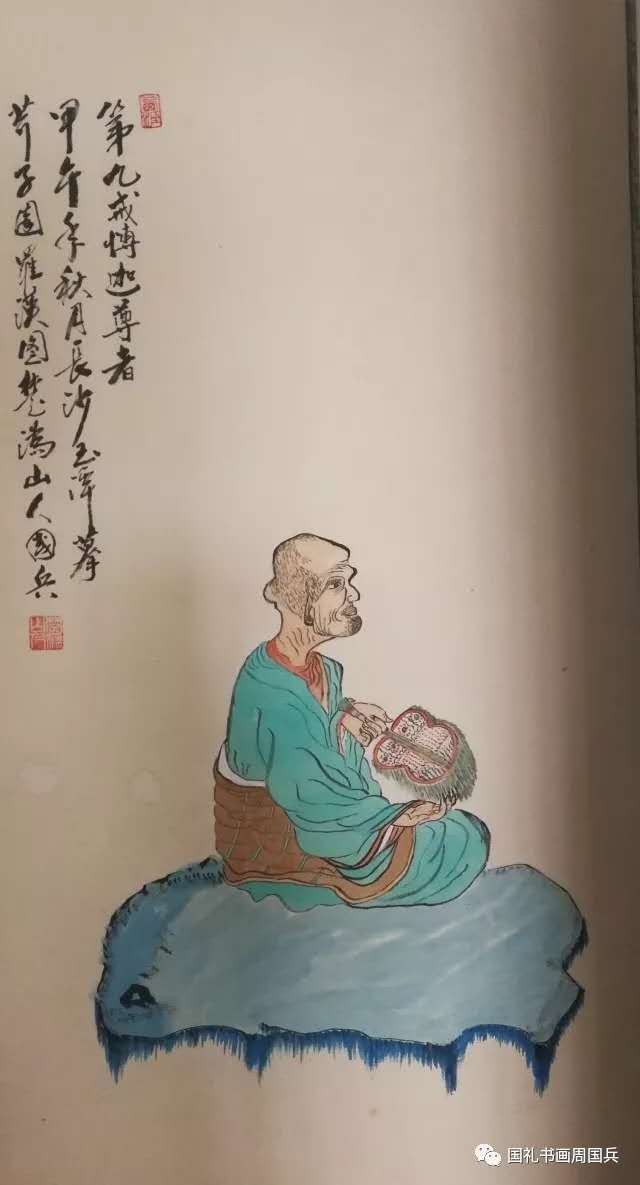 第九戒博迦尊者
甲午年秋月長沙玉潭摹
芥子園羅漢图楚溈山人國兵
国礼书画周国兵